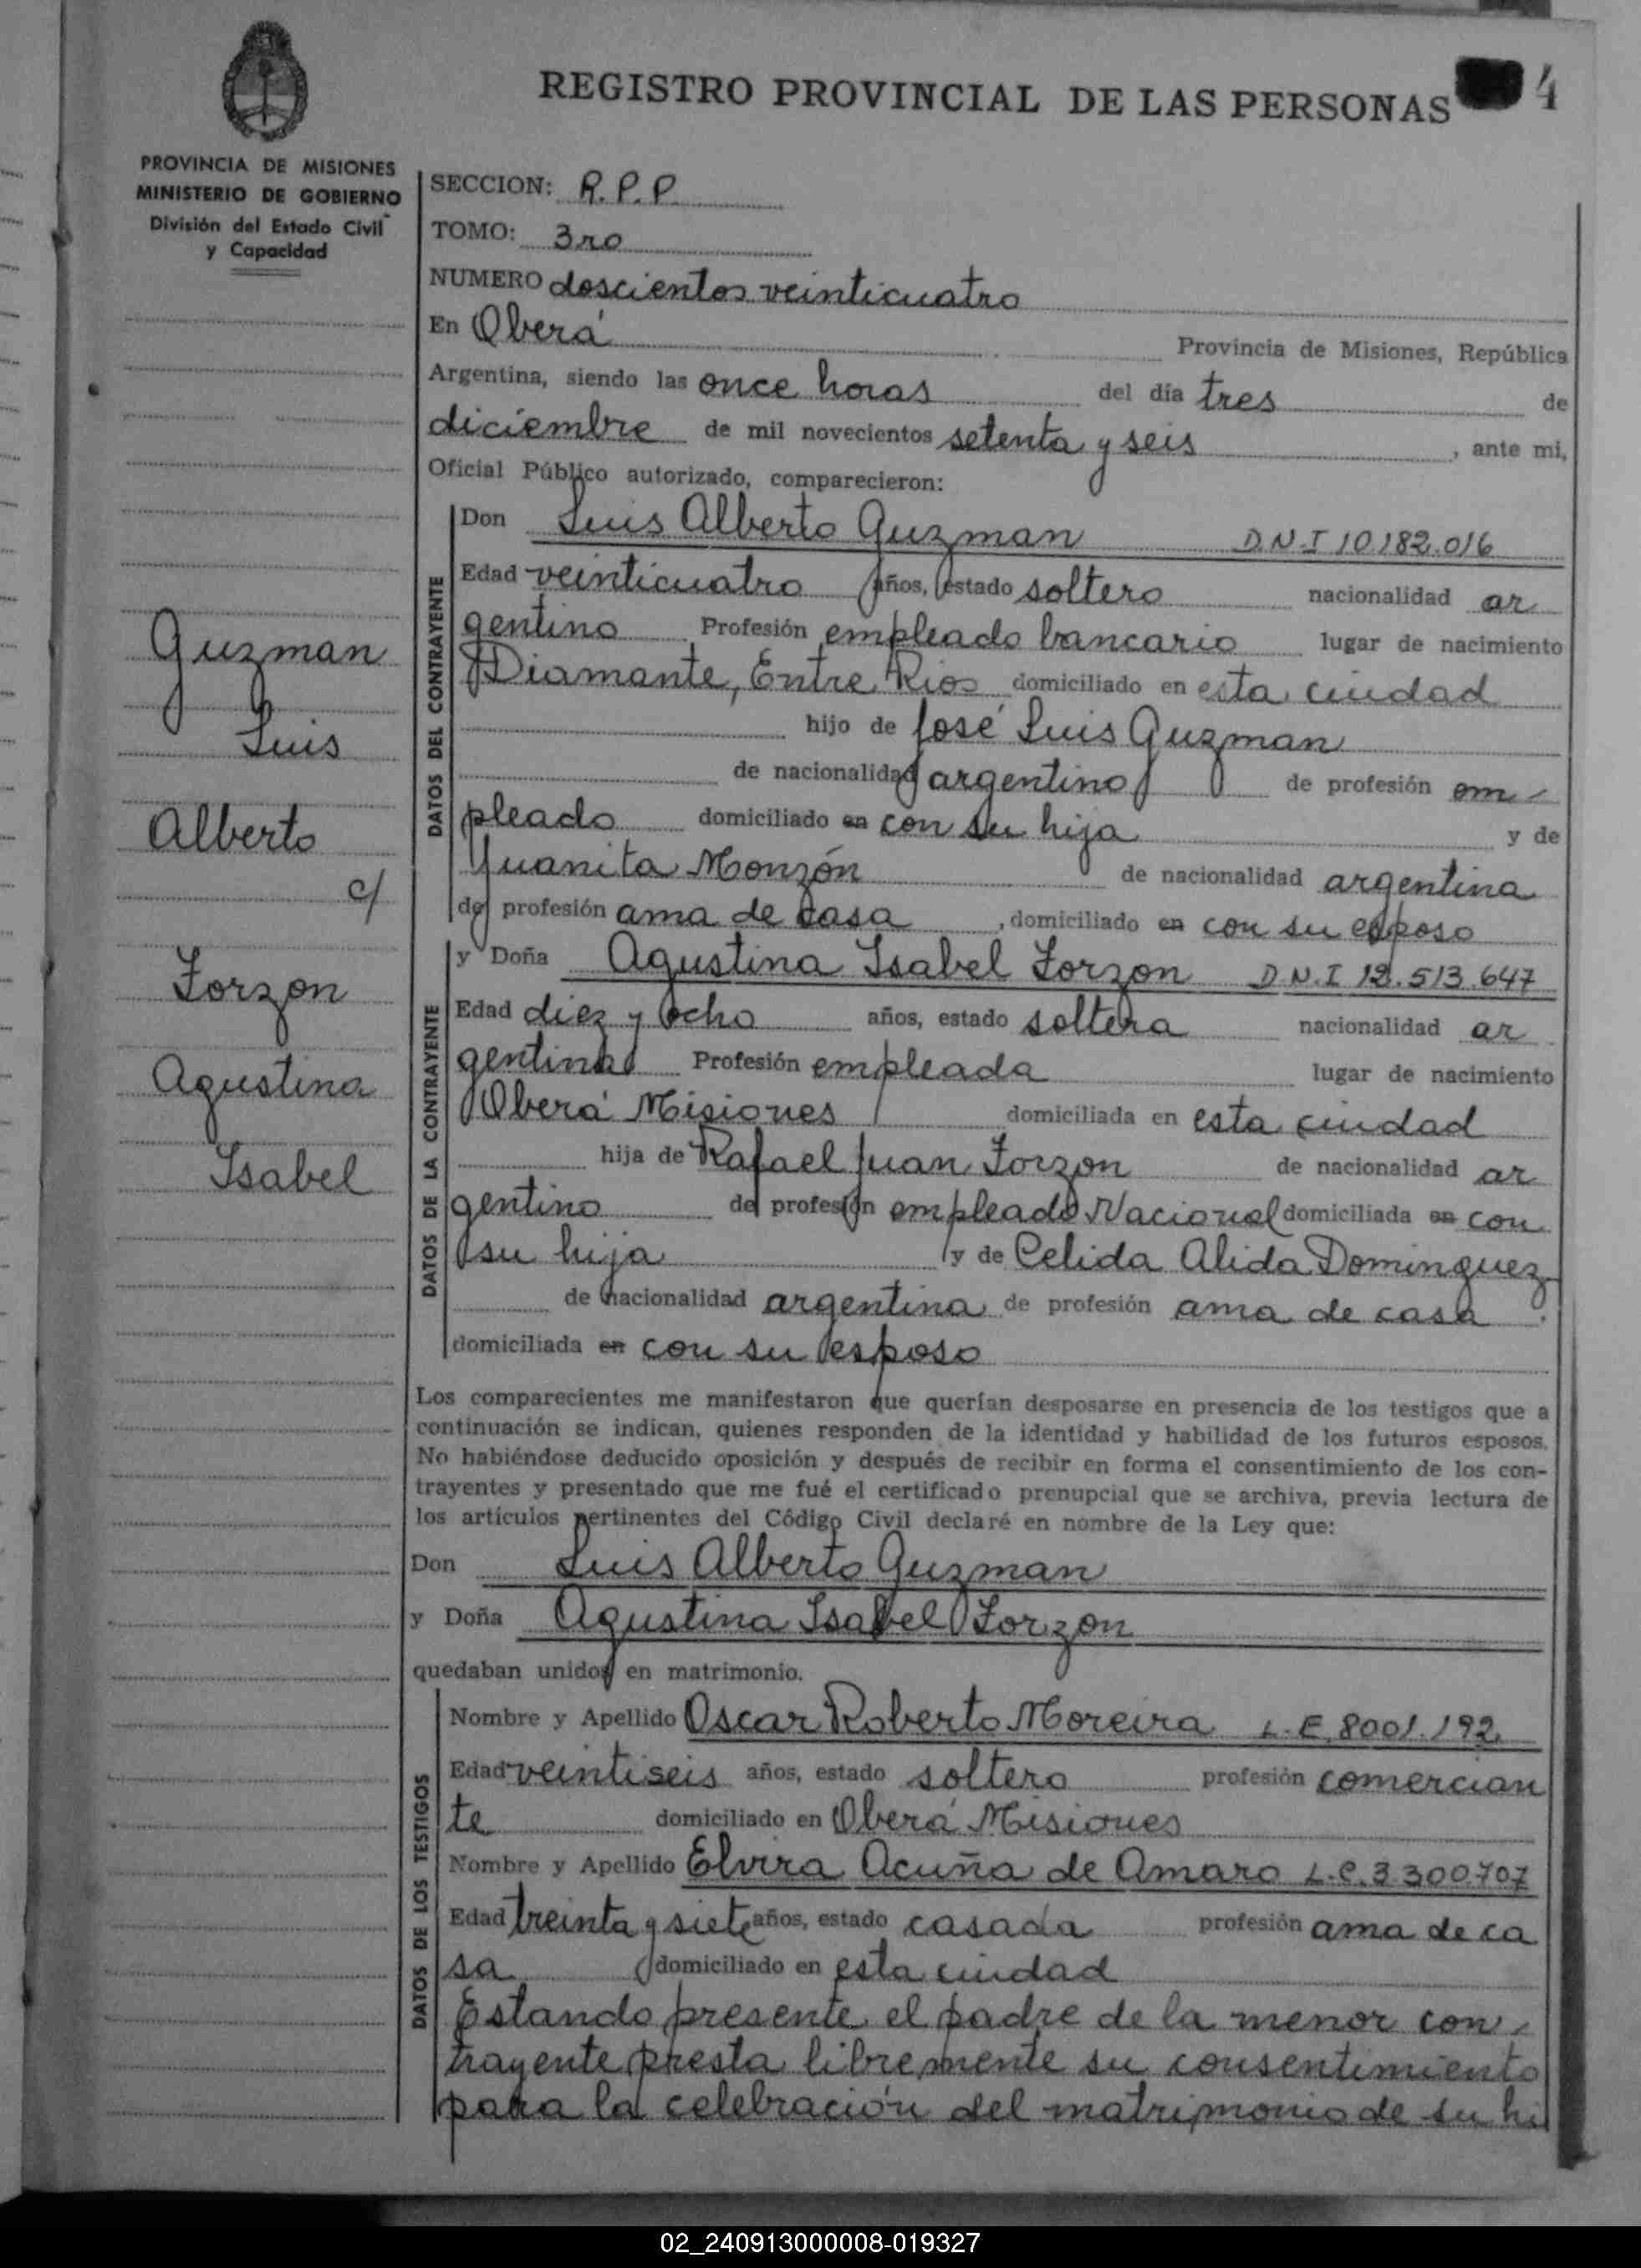 REGISTRO PROVINCIAL DE LAS PERSONAS 4
PROVINCIA DE MISIONES
MINISTERIO DE GOBIERNO
División del Estado Civil
y Capacidad
SECCION: R.P.P.
TOMO: 3ro
NUMERO doscientos veinticuatro
En Oberá Provincia de Misiones, República
Argentina, siendo las once horas del día tres de
diciembre de mil novecientos setenta y seis, ante mi,
Oficial Público autorizado, comparecieron:
Guzman
Luis
Alberto
c/
Zorzon
Agustina
Isabel
DATOS DEL CONTRAYENTE
Don Luis Alberto Guzman D.N.I 10.182.016
Edad veinticuatro años, estado soltero nacionalidad ar
gentino Profesión empleado bancario lugar de nacimiento
Diamante, Entre Rios domiciliado en esta ciudad
hijo de José Luis Guzman
de nacionalidad argentino de profesión em-
pleado domiciliado en con su hija y de
Juanita Monzón de nacionalidad argentina
de profesión ama de casa, domiciliado en con su esposo
DATOS DE LA CONTRAYENTE
y Doña Agustina Isabel Zorzon D.N.I 12.513.647
Edad diez y ocho años, estado soltera nacionalidad ar
gentina Profesión empleada lugar de nacimiento
Oberá Misiones domiciliada en esta ciudad
hija de Rafael Juan Zorzon de nacionalidad ar
gentino de profesión empleado Nacional domiciliada en con
su hija y de Celida Alida Dominguez
de nacionalidad argentina de profesión ama de casa.
domiciliada en con su esposo
Los comparecientes me manifestaron que querían desposarse en presencia de los testigos que a
continuación se indican, quienes responden de la identidad y habilidad de los futuros esposos.
No habiéndose deducido oposición y después de recibir en forma el consentimiento de los con-
trayentes y presentado que me fué el certificado prenupcial que se archiva, previa lectura de
los artículos pertinentes del Código Civil declaré en nombre de la Ley que:
Don Luis Alberto Guzman
y Doña Agustina Isabel Zorzon
quedaban unidos en matrimonio.
DATOS DE LOS TESTIGOS
Nombre y Apellido Oscar Roberto Moreira L.E. 8001.192
Edad veintiseis años, estado soltero profesión comercian
te domiciliado en Oberá Misiones
Nombre y Apellido Elvira Acuña de Amaro L.C.3.300.707
Edad treinta y siete años, estado casada profesión ama de ca
sa domiciliado en esta ciudad
Estando presente el padre de la menor con-
trayente presta libremente su consentimiento
para la celebración del matrimonio de su hi
02_240913000008-019327